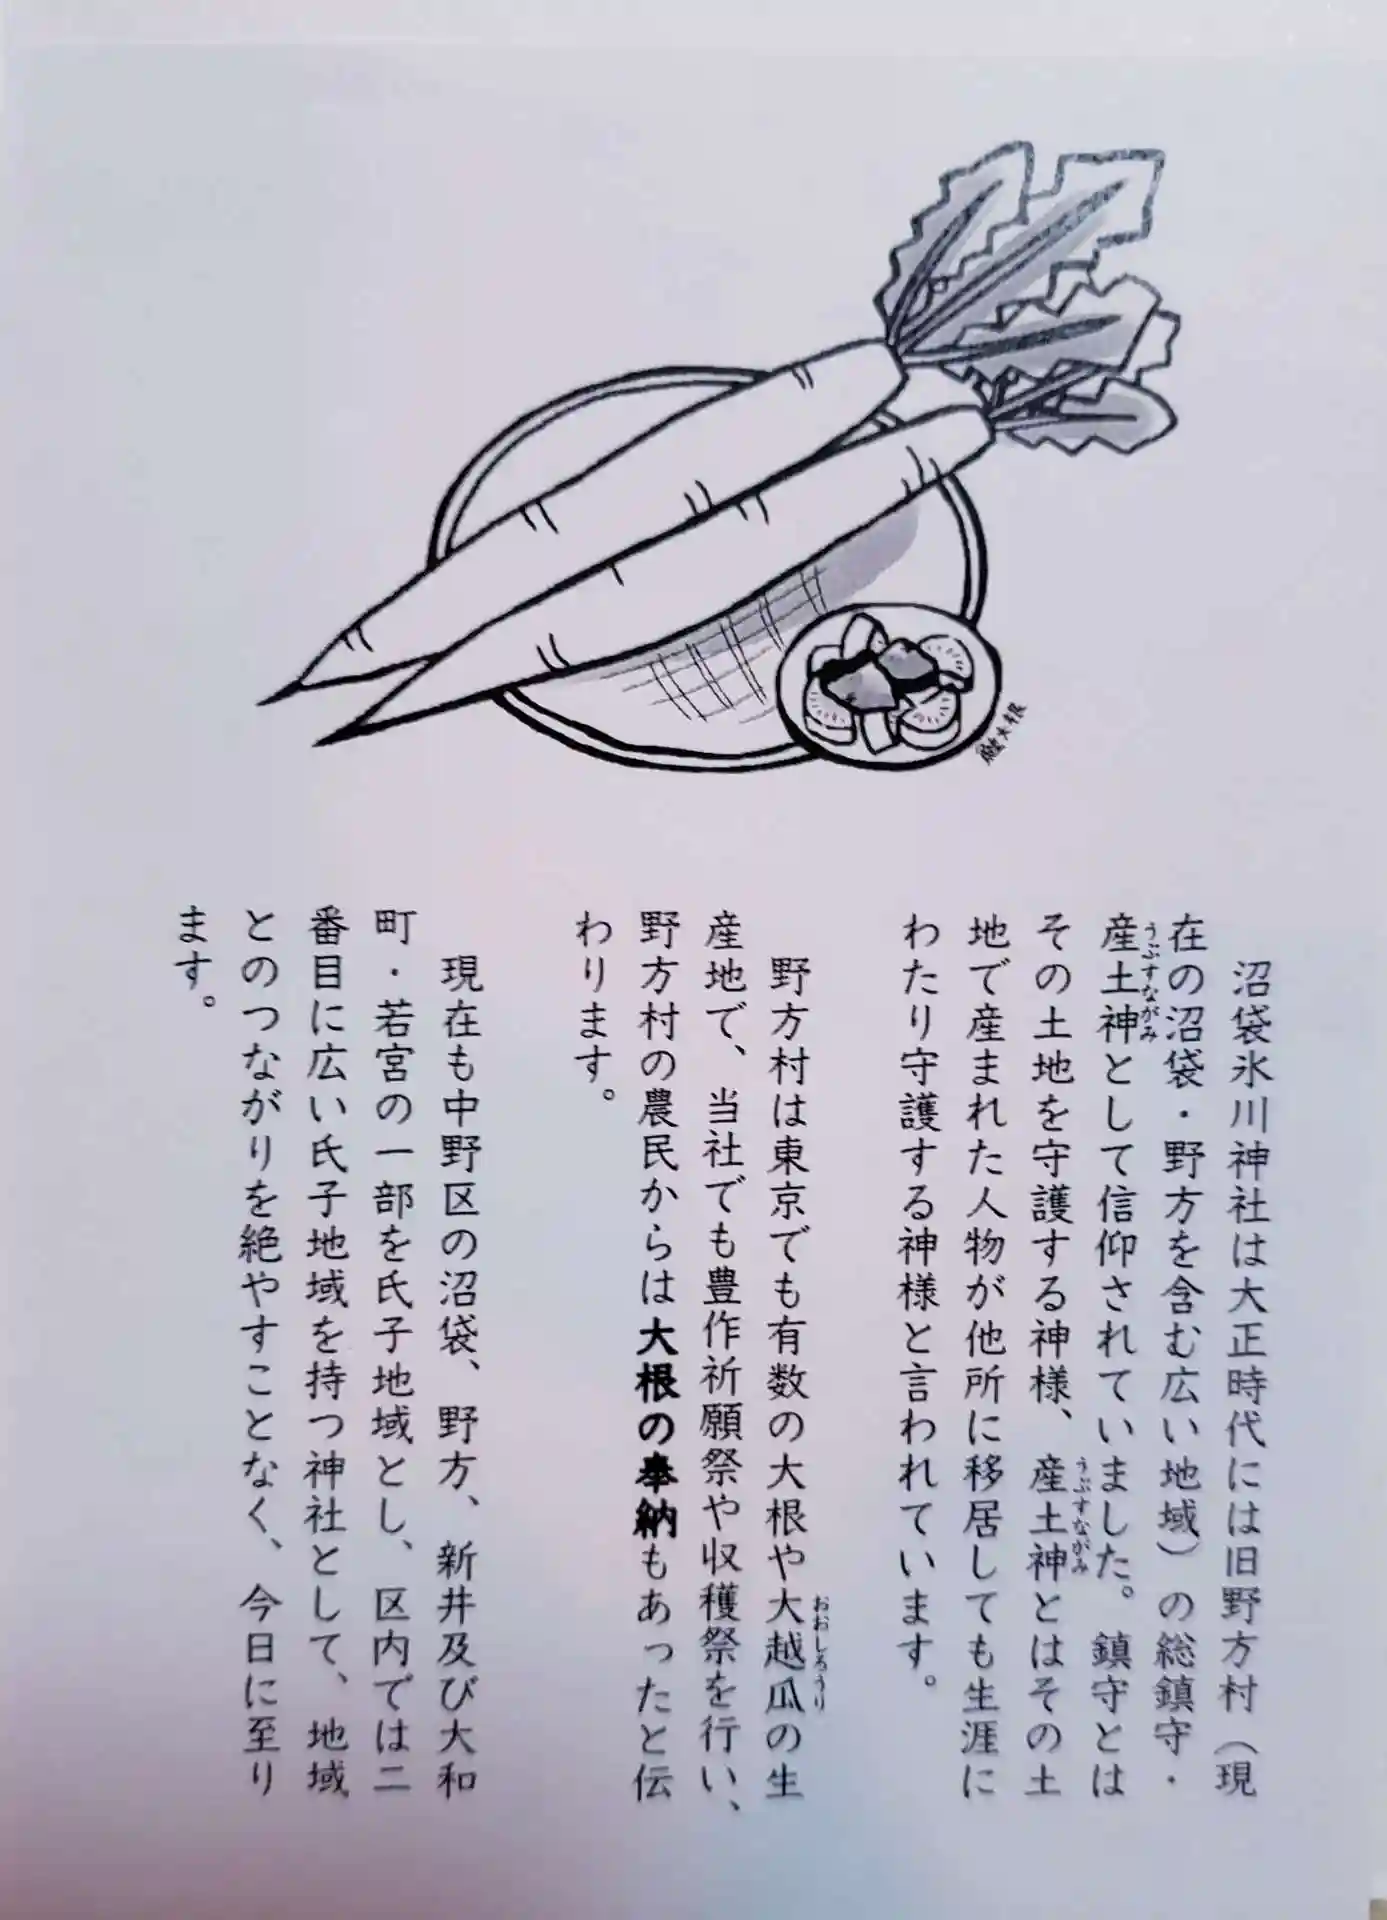 鰤大根
沼袋氷川神社は大正時代には旧野方村（現
在の沼袋・野方を含む広い地域）の総鎮守・
産土神として信仰されていました。鎮守とは
うぶすながみ
その土地を守護する神様、産土神とはその土
うぶすながみ
地で産まれた人物が他所に移居しても生涯に
わたり守護する神様と言われています。
野方村は東京でも有数の大根や大越瓜の生
おおしろうり
産地で、当社でも豊作祈願祭や収穫祭を行い、
野方村の農民からは大根の奉納もあったと伝
わります。
現在も中野区の沼袋、野方、新井及び大和
町・若宮の一部を氏子地域とし、区内では二
番目に広い氏子地域を持つ神社として、地域
とのつながりを絶やすことなく、今日に至り
ます。